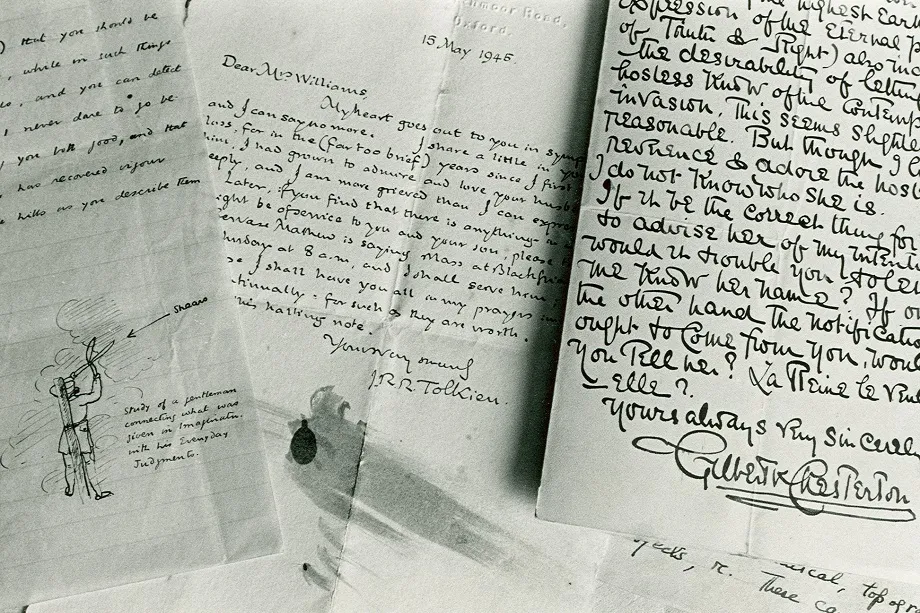 ) that you should be
, while in such things
, and you can detect
I never dare to go be
you both good, and that
has recovered vigour
hills as you describe them
shears
Study of a gentleman
connecting what was
given in Imagination
with his Everyday
Judgments.
moor Road,
Oxford.
15 May 1945.
Dear Mrs Williams,
My heart goes out to you in symp
and I can say no more. I share a little in yo
loss, for in the (far too brief) years since I first
him, I had grown to admire and love your husb
eeply, and I am more grieved than I can expre
Later, if you find that there is anything in
ight be of service to you and your son, please
ervase Mathew is saying Mass at Blackfri
unday at 8 a.m. and I shall serve him,
I shall have you all in my prayers
tinually: for such as they are worth.
his halting note.
Yours very sincerely
J.R.R. Tolkien.
the highest Eart
expression of the Eternal p
of Truth & Right) also inc
the desirability of letting
hostess know of the contemp
invasion. This seems slightly
reasonable. But though I c
reverence & adore the host
I do not know who she is.
If it be the correct thing for
to advise her of my intenti
would it trouble you to let
me know her name? If on
the other hand the notificatio
ought to come from you, would
you tell her? La Reine le veut
elle?
Yours always very sincerely
Gilbert K Chesterton
ical, topogr
These ca